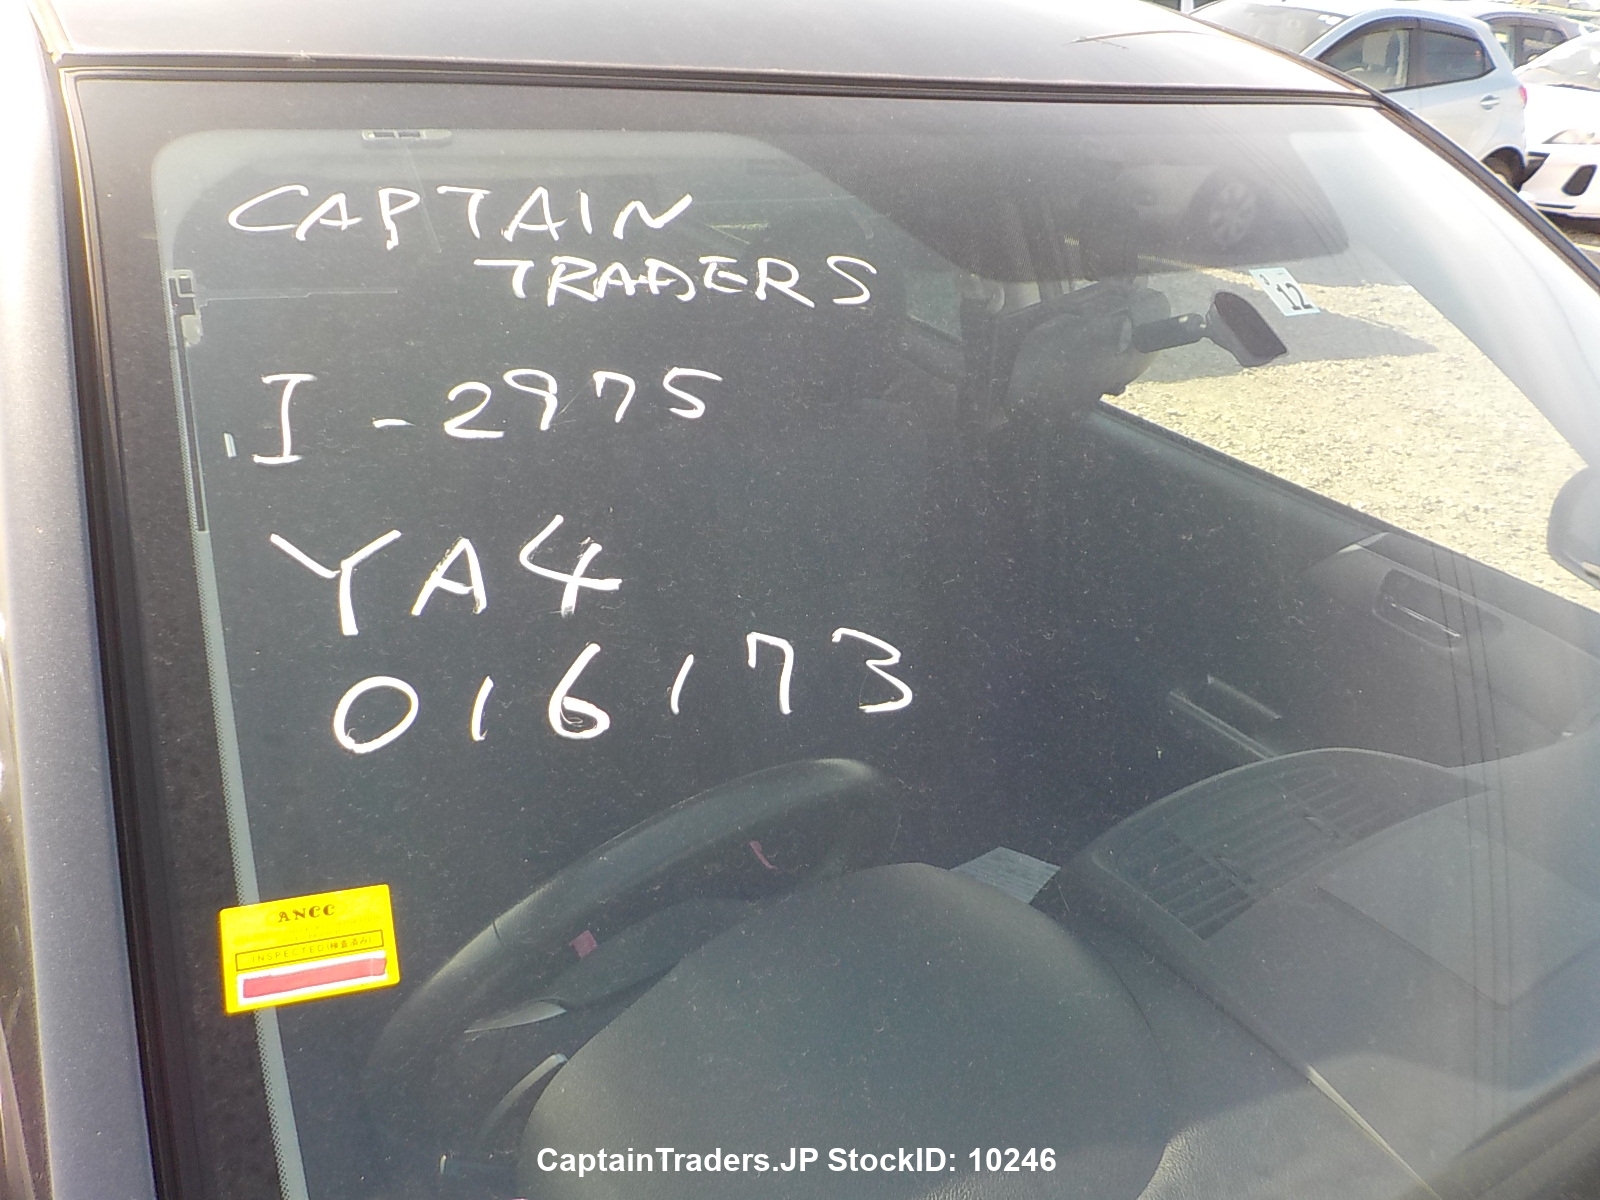 CAPTAIN
TRADERS
I-2975
YA4
016173
12
ANCC
INSPECTED(検査済み)
CaptainTraders.JP StockID: 10246